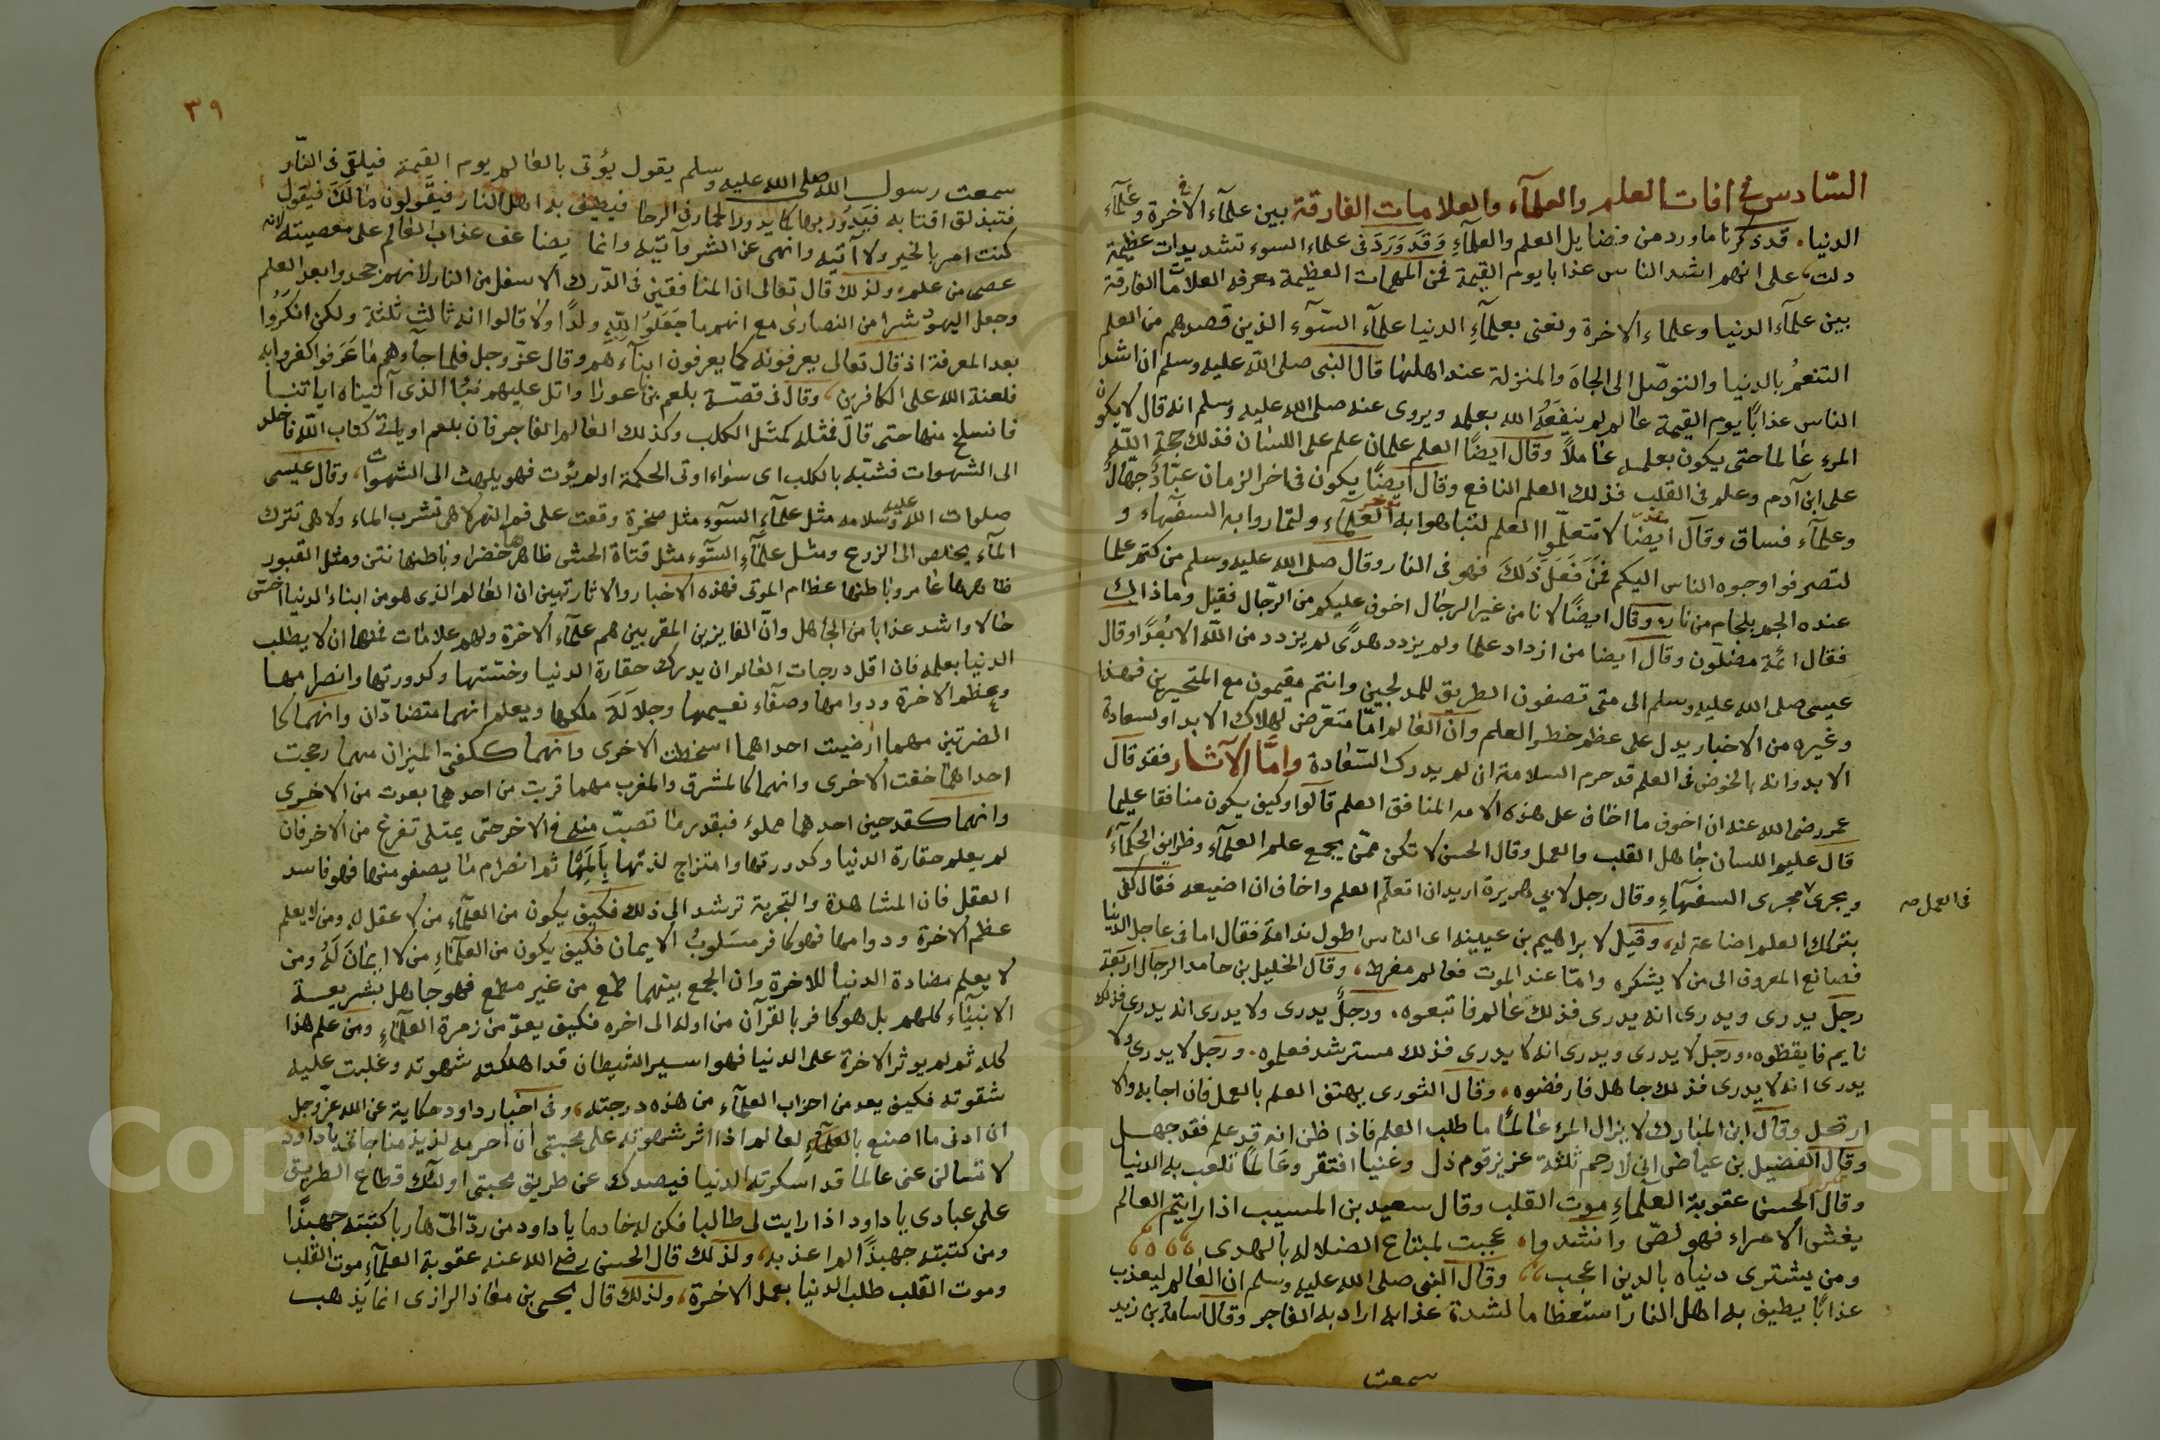 السادس في افات العلم والعلمآء والعلامات الفارقة بين علمآء الاخرة وعلمآء
الدنيا، قد ذكرنا ما ورد من فضايل العلم والعلمآء وقد ورد فى علماء السوء تشديدات عظيمة
دلت على انهم اشد الناس عذابا يوم القيمة فمن المهمات العظيمة معرفة العلامات الفارقة
بين علمآء الدنيا وعلماء الاخرة ونعنى بعلمآء الدنيا علمآء السوء الذين قصدهم من العلم
التنعم بالدنيا والتوصل الى الجاه والمنزلة عند اهلها قال النبى صلى الله عليه وسلم ان اشد
الناس عذابًا يوم القيمة عالم لم ينفعه الله بعلمه ويروى عنه صلى الله عليه وسلم انه قال لا يكون
المرء عالما حتى يكون بعلمه عاملاً وقال ايضًا العلم علمان علم على اللسان فذلك حجة الله
على ابن آدم وعلم فى القلب فذلك العلم النافع وقال ايضًا يكون فى اخر الزمان عبّاد جهّال
وعلمآء فساق وقال ايضًا لا تتعلموا العلم لتباهوا به العلمآء ولتماروا به السفهاء و
لتصرفوا وجوه الناس اليكم فمن فعل ذلك فهو فى النار وقال صلى الله عليه وسلم من كتم علما
عنده الجم بلجام من نار، وقال ايضًا لانا من غير الرجال اخوف عليكم من الرجّال فقيل وما ذلك
فقال ائمة مضلّون وقال ايضا من ازداد علما ولم يزدد هدًى لم يزدد من الله الا بعدًا وقال
عيسى صلى الله عليه وسلم الى متى تصفون الطريق للمدلجين وانتم مقيمون مع المتحيرين فهذا
وغيره من الاخبار يدل على عظم خطر العلم وان العالم امّا متعرض لهلاك الابد او لسعادة
الابد وانه بالخوض فى العلم قد حرم السلامة ان لم يدرك السعادة وامّا الآثار فقد قال
عمر رضى الله عنه ان اخوف ما اخاف على هذه الامه المنافق العلم قالوا وكيف يكون منافقا عليما
قال عليم اللسان جاهل القلب والعمل وقال الحسن لا تكن ممّن يجمع علم العلمآء وظرايف الحكمآء
ويجرى مجرى السفهآء وقال رجل لابي هريرة اريد ان اتعلم العلم واخاف ان اضيعه فقال كفى
فى العمل صه
بترك العلم اضاعة له، وقيل لابراهيم بن عيينه اى الناس اطول ندامة فقال اما فى عاجل الدنيا
فصانع المعروف الى من لا يشكره وامّا عند الموت فعالم مفرط، وقال الخليل بن حامد الرجال اربعة
رجل يدرى ويدرى انه يدرى فذلك عالم فاتبعوه، ورجل يدرى ولا يدرى انه يدرى فذلك
نايم فايقظوه، ورجل لا يدرى ويدرى انه لا يدرى فذلك مسترشد فعلموه، ورجل لا يدرى ولا
يدرى انه لا يدرى فذلك جاهل فارفضوه، وقال الثورى يهتف العلم بالعمل فان اجابه والا
ارتحل وقال ابن المبارك لا يزال المرء عالمًا ما طلب العلم فاذا ظن انه قد علم فقد جهل
وقال الفضيل بن عياض انى لارحم ثلثة عزيز قوم ذل وغنيا افتقر وعالما تلعب به الدنيا
وقال الحسن عقوبة العلماء موت القلب وقال سعيد بن المسيب اذا رايتم العالم
يغشى الامراء فهو لصّ وانشدوا، عجبت لمبتاع الضلاله بالهدى
ومن يشترى دنياه بالدين اعجب وقال النبى صلى الله عليه وسلم ان العالم ليعذب
عذابًا يطيف به اهل النار استعظاما لشدة عذابه اراد به الفاجر وقال اسامة بن زيد
سمعت
٣٩
سمعت رسول الله صلى الله عليه وسلم يقول يؤتى بالعالم يوم القيمة فيلقى فى النّار
فتندلق اقتابه فيدور بها كما يدور الحمار فى الرحا فيطيف به اهل النار فيقولون مالك فيقول
كنت امر بالخير ولا آتيه وانهى عن الشر وآتيه وانما يضاعف عذاب العالم على معصيته لانه
عصى من علم، ولذلك قال تعالى ان المنافقين فى الدّرك الاسفل من النار لانهم جحدوا بعد العلم
وجعل اليهود شرا من النصارى مع انهم ما جعلوا لله ولدًا ولا قالوا انه ثالث ثلثة ولكن انكروا
بعد المعرفة اذ قال تعالى يعرفونه كما يعرفون ابنآءهم وقال عزّ وجل فلما جآءهم ما عرفوا كفروا به
فلعنة الله على الكافرين، وقال فى قصّة بلعم بن عورا واتل عليهم نبأ الذى آتيناه اياتنا
فانسلخ منها حتى قال فمثله كمثل الكلب وكذلك العالم الفاجر فان بلعم اوتى كتاب الله فاخلد
الى الشهوات فشبّه بالكلب اى سواء اوتى الحكمة او لم يؤت فهو يلهث الى الشهوات، وقال عيسى
صلوات الله عليه وسلامه مثل علمآء السوء مثل صخرة وقعت على فم النهر لا هى تشرب الماء ولا هى تترك
المآء يخلص الى الزرع ومثل علمآء السوء مثل قناة الحش ظاهرها خضرا وباطنها نتن ومثل القبور
ظاهرها عامر وباطنها عظام الموتى فهذه الاخبار والاثار تبين ان العالم الذى هو من ابناء الدنيا اخسّ
حالا واشد عذابا من الجاهل وانّ الفايزين المقربين هم علمآء الاخرة ولهم علامات فمنها ان لا يطلب
الدنيا بعلمه فان اقل درجات العالم ان يدرك حقارة الدنيا وخستها وكدورتها وانصرامها
وعظم الاخرة ودوامها وصفآء نعيمها وجلالة ملكها ويعلم انهما متضادّان وانهما كا
لضرتين مهما ارضيت احداهما اسخطت الاخرى وانهما ككفتى الميزان مهما رجحت
احداهما خفت الاخرى وانهما كالمشرق والمغرب مهما قربت من احدهما بعدت من الاخرى
وانهما كقدحين احدهما مملوء فبقدر ما تصبّ منه فى الاخر حتى يمتلى تفرغ من الاخر فان
لم يعلم حقارة الدنيا وكدورتها وامتزاج لذتها بالمها ثم انصرام ما يصفو منها فهو فاسد
العقل فان المشاهدة والتجربة ترشد الى ذلك فكيف يكون من العلمآء من لا عقل له ومن لا يعلم
عظم الاخرة ودوامها فهو كافر مسلوب الايمان فكيف يكون من العلمآء من لا ايمان له ومن
لا يعلم مضادة الدنيا للاخرة وان الجمع بينهما طمع من غير مطمع فهو جاهل بشريعة
الانبيآء كلهم بل هو كافر بالقرآن من اوله الى اخره فكيف يعدّ من زمرة العلمآء ومن علم هذا
كله ثم لم يوثر الاخرة على الدنيا فهو اسير الشيطان قد اهلكته شهوته وغلبت عليه
شقوته فكيف يعد من احزاب العلمآء من هذه درجته، وفى اخبار داود حكاية عن الله عزّ وجل
ان ادنى ما اصنع بالعلمآء لعالم اذا اثر شهوته على محبتى ان احرمه لذيذ مناجاتى يا داود
لا تسالن عنى عالما قد اسكرته الدنيا فيصدك عن طريق محبتى اولئك قطاع الطريق
على عبادى يا داود اذا رايت لى طالبا فكن له خادما يا داود من ردّ الىّ هاربا كتبته جهبذًا
ومن كتبته جهبذًا لم اعذبه، ولذلك قال الحسن رضى الله عنه عقوبة العلمآء موت القلب
وموت القلب طلب الدنيا بعمل الاخرة، ولذلك قال يحيى بن معاذ الرازى انما يذهب